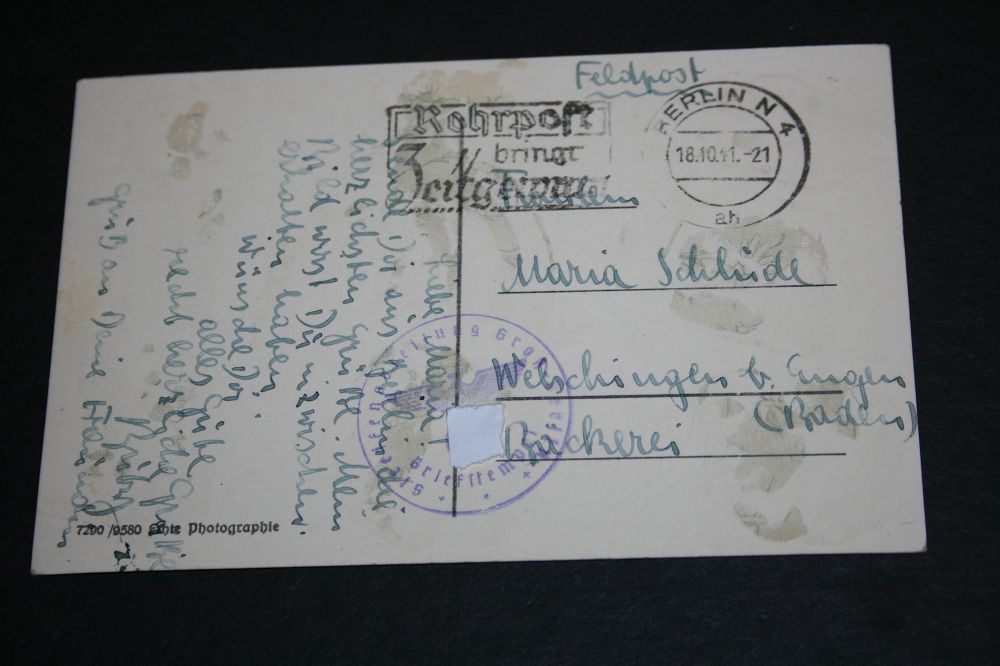 Feldpost
Rohrpost
bringt
Zeitgewinn
BERLIN N 4
18.10.41.-21
ah
Fräulein
Maria Schlude
Welschingen b. Engen
(Baden)
Bäckerei
Briefstempel
Liebe Maria!
Sende Dir aus Berlin die
herzlichsten Grüße. Mein
Bild wirst Du inzwischen
erhalten haben.
Wünsche Dir
alles Gute
recht herzliche Grüße
Gruß an Deine Freundin
7290/9580 Echte Photographie